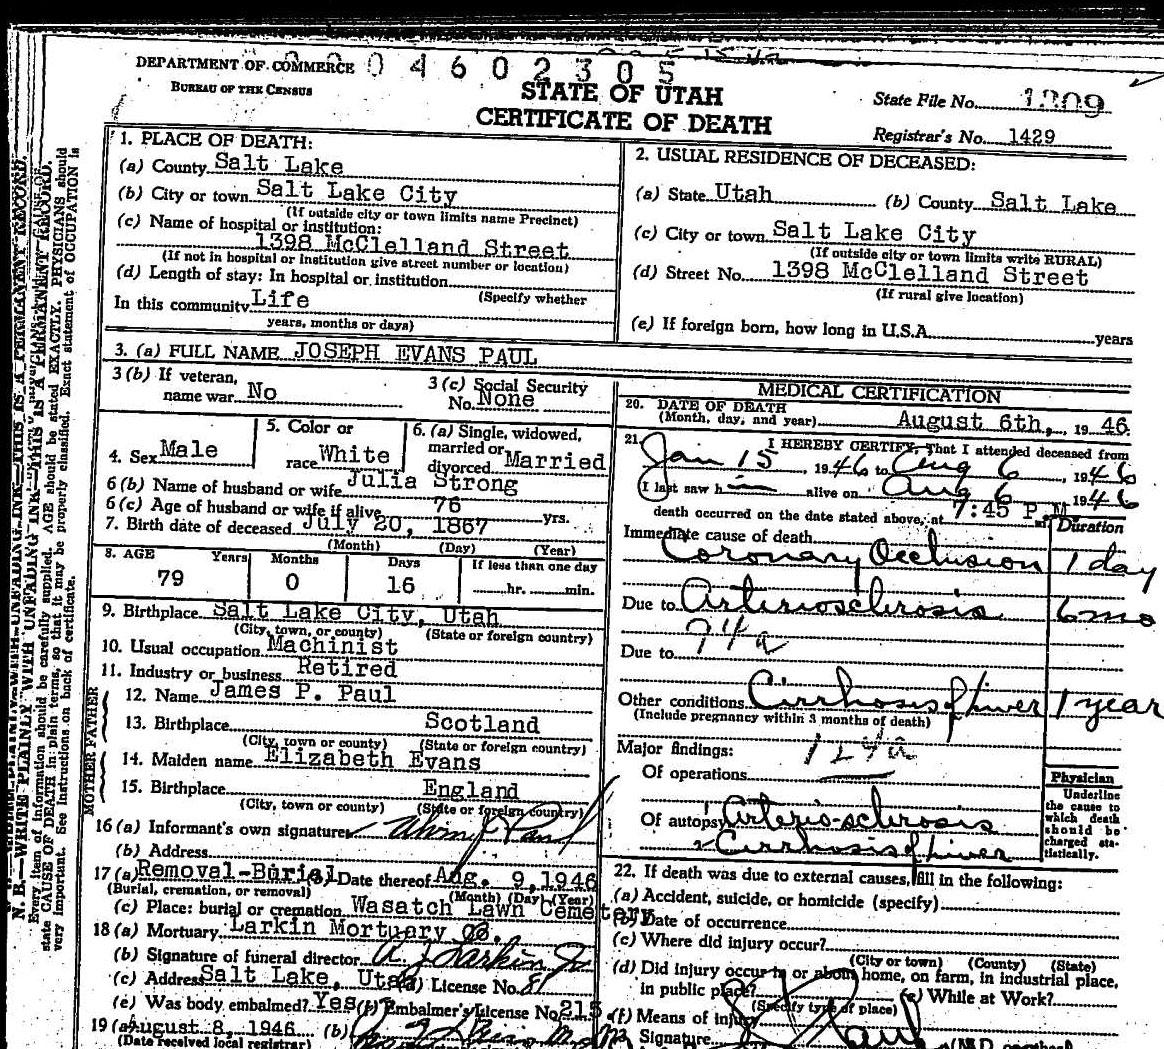 DEPARTMENT OF COMMERCE 04602305
BUREAU OF THE CENSUS
STATE OF UTAH
CERTIFICATE OF DEATH
State File No. 1209
Registrar's No. 1429
1. PLACE OF DEATH:
(a) County Salt Lake
(b) City or town Salt Lake City
(If outside city or town limits name Precinct)
(c) Name of hospital or institution:
1398 McClelland Street
(If not in hospital or institution give street number or location)
(d) Length of stay: In hospital or institution
(Specify whether
In this community Life
years, months or days)
2. USUAL RESIDENCE OF DECEASED:
(a) State Utah (b) County Salt Lake
(c) City or town Salt Lake City
(If outside city or town limits write RURAL)
(d) Street No. 1398 McClelland Street
(If rural give location)
(e) If foreign born, how long in U.S.A. years
3. (a) FULL NAME JOSEPH EVANS PAUL
3 (b) If veteran,
name war No
3 (c) Social Security
No. None
4. Sex Male
5. Color or
race White
6. (a) Single, widowed,
married or
divorced Married
6 (b) Name of husband or wife Julia Strong
6 (c) Age of husband or wife if alive 76 yrs.
7. Birth date of deceased July 20, 1867
(Month) (Day) (Year)
8. AGE Years Months Days If less than one day
79 0 16 hr. min.
9. Birthplace Salt Lake City, Utah
(City, town, or county) (State or foreign country)
10. Usual occupation Machinist
11. Industry or business Retired
FATHER
12. Name James P. Paul
13. Birthplace Scotland
(City, town or county) (State or foreign country)
MOTHER
14. Maiden name Elizabeth Evans
15. Birthplace England
(City, town or county) (State or foreign country)
16 (a) Informant's own signature Paul
(b) Address
17 (a) Removal-Burial (b) Date thereof Aug. 9, 1946
(Burial, cremation, or removal) (Month) (Day) (Year)
(c) Place: burial or cremation Wasatch Lawn Cemetery
18 (a) Mortuary Larkin Mortuary Co.
(b) Signature of funeral director A J Larkin Jr
(c) Address Salt Lake, Utah (d) License No. 81
(e) Was body embalmed? Yes (f) Embalmer's License No 215
19 (a) August 8, 1946 (b)
(Date received local registrar)
MEDICAL CERTIFICATION
20. DATE OF DEATH
(Month, day, and year) August 6th, 19 46
21. I HEREBY CERTIFY, That I attended deceased from
Jan 15, 1946 to Aug 6, 1946
I last saw him alive on Aug 6 1946
death occurred on the date stated above, at 7:45 P.M.
Duration
Immediate cause of death
Coronary Occlusion 1 day
Due to Arteriosclerosis 6 mo
94a
Due to
Other conditions Cirrhosis of liver 1 year
(Include pregnancy within 3 months of death)
124a
Major findings:
Of operations
Of autopsy Arterio-sclerosis
Cirrhosis of liver
Physician
Underline
the cause to
which death
should be
charged sta-
tistically.
22. If death was due to external causes, fill in the following:
(a) Accident, suicide, or homicide (specify)
(b) Date of occurrence
(c) Where did injury occur?
(City or town) (County) (State)
(d) Did injury occur in or about home, on farm, in industrial place,
in public place? (e) While at Work?
(Specify type of place)
(f) Means of injury
Signature Paul (M.D. or other)
N. B.—WRITE PLAINLY WITH UNFADING INK—THIS IS A PERMANENT RECORD.
Every item of information should be carefully supplied. AGE should be stated EXACTLY. PHYSICIANS should
state CAUSE OF DEATH in plain terms, so that it may be properly classified. Exact statement of OCCUPATION is
very important. See Instructions on back of certificate.